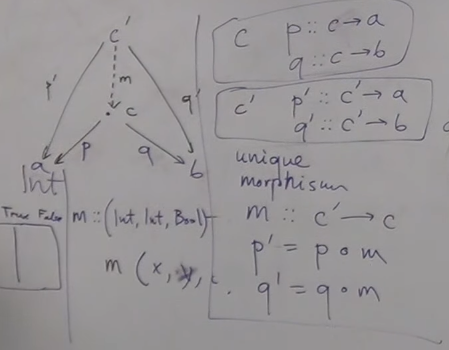 c'
m
p'
q'
c
p
q
a
b
Int
True False
m :: (Int, Int, Bool)
m (x, y,
c p :: c → a
q :: c → b
c' p' :: c' → a
q' :: c' → b
unique
morphism
m :: c' → c
p' = p ∘ m
q' = q ∘ m